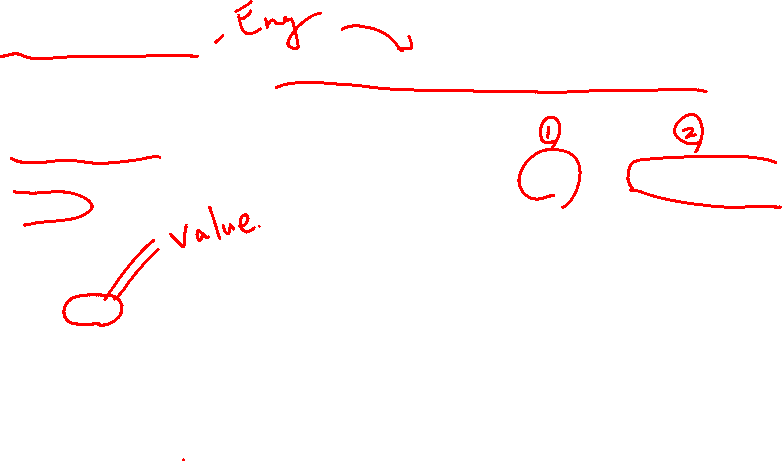 Eng
① ②
value.